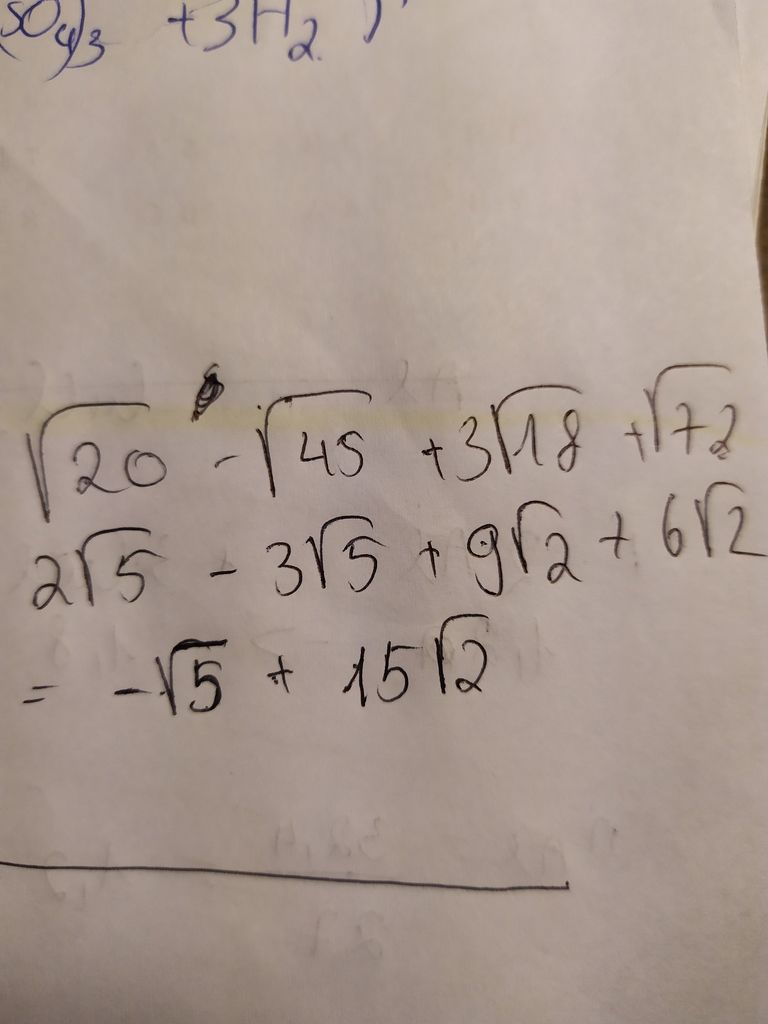 SO₄)₃ +3H₂
√20 - √45 +3√18 +√72
2√5 - 3√5 + 9√2 + 6√2
= -√5 + 15√2